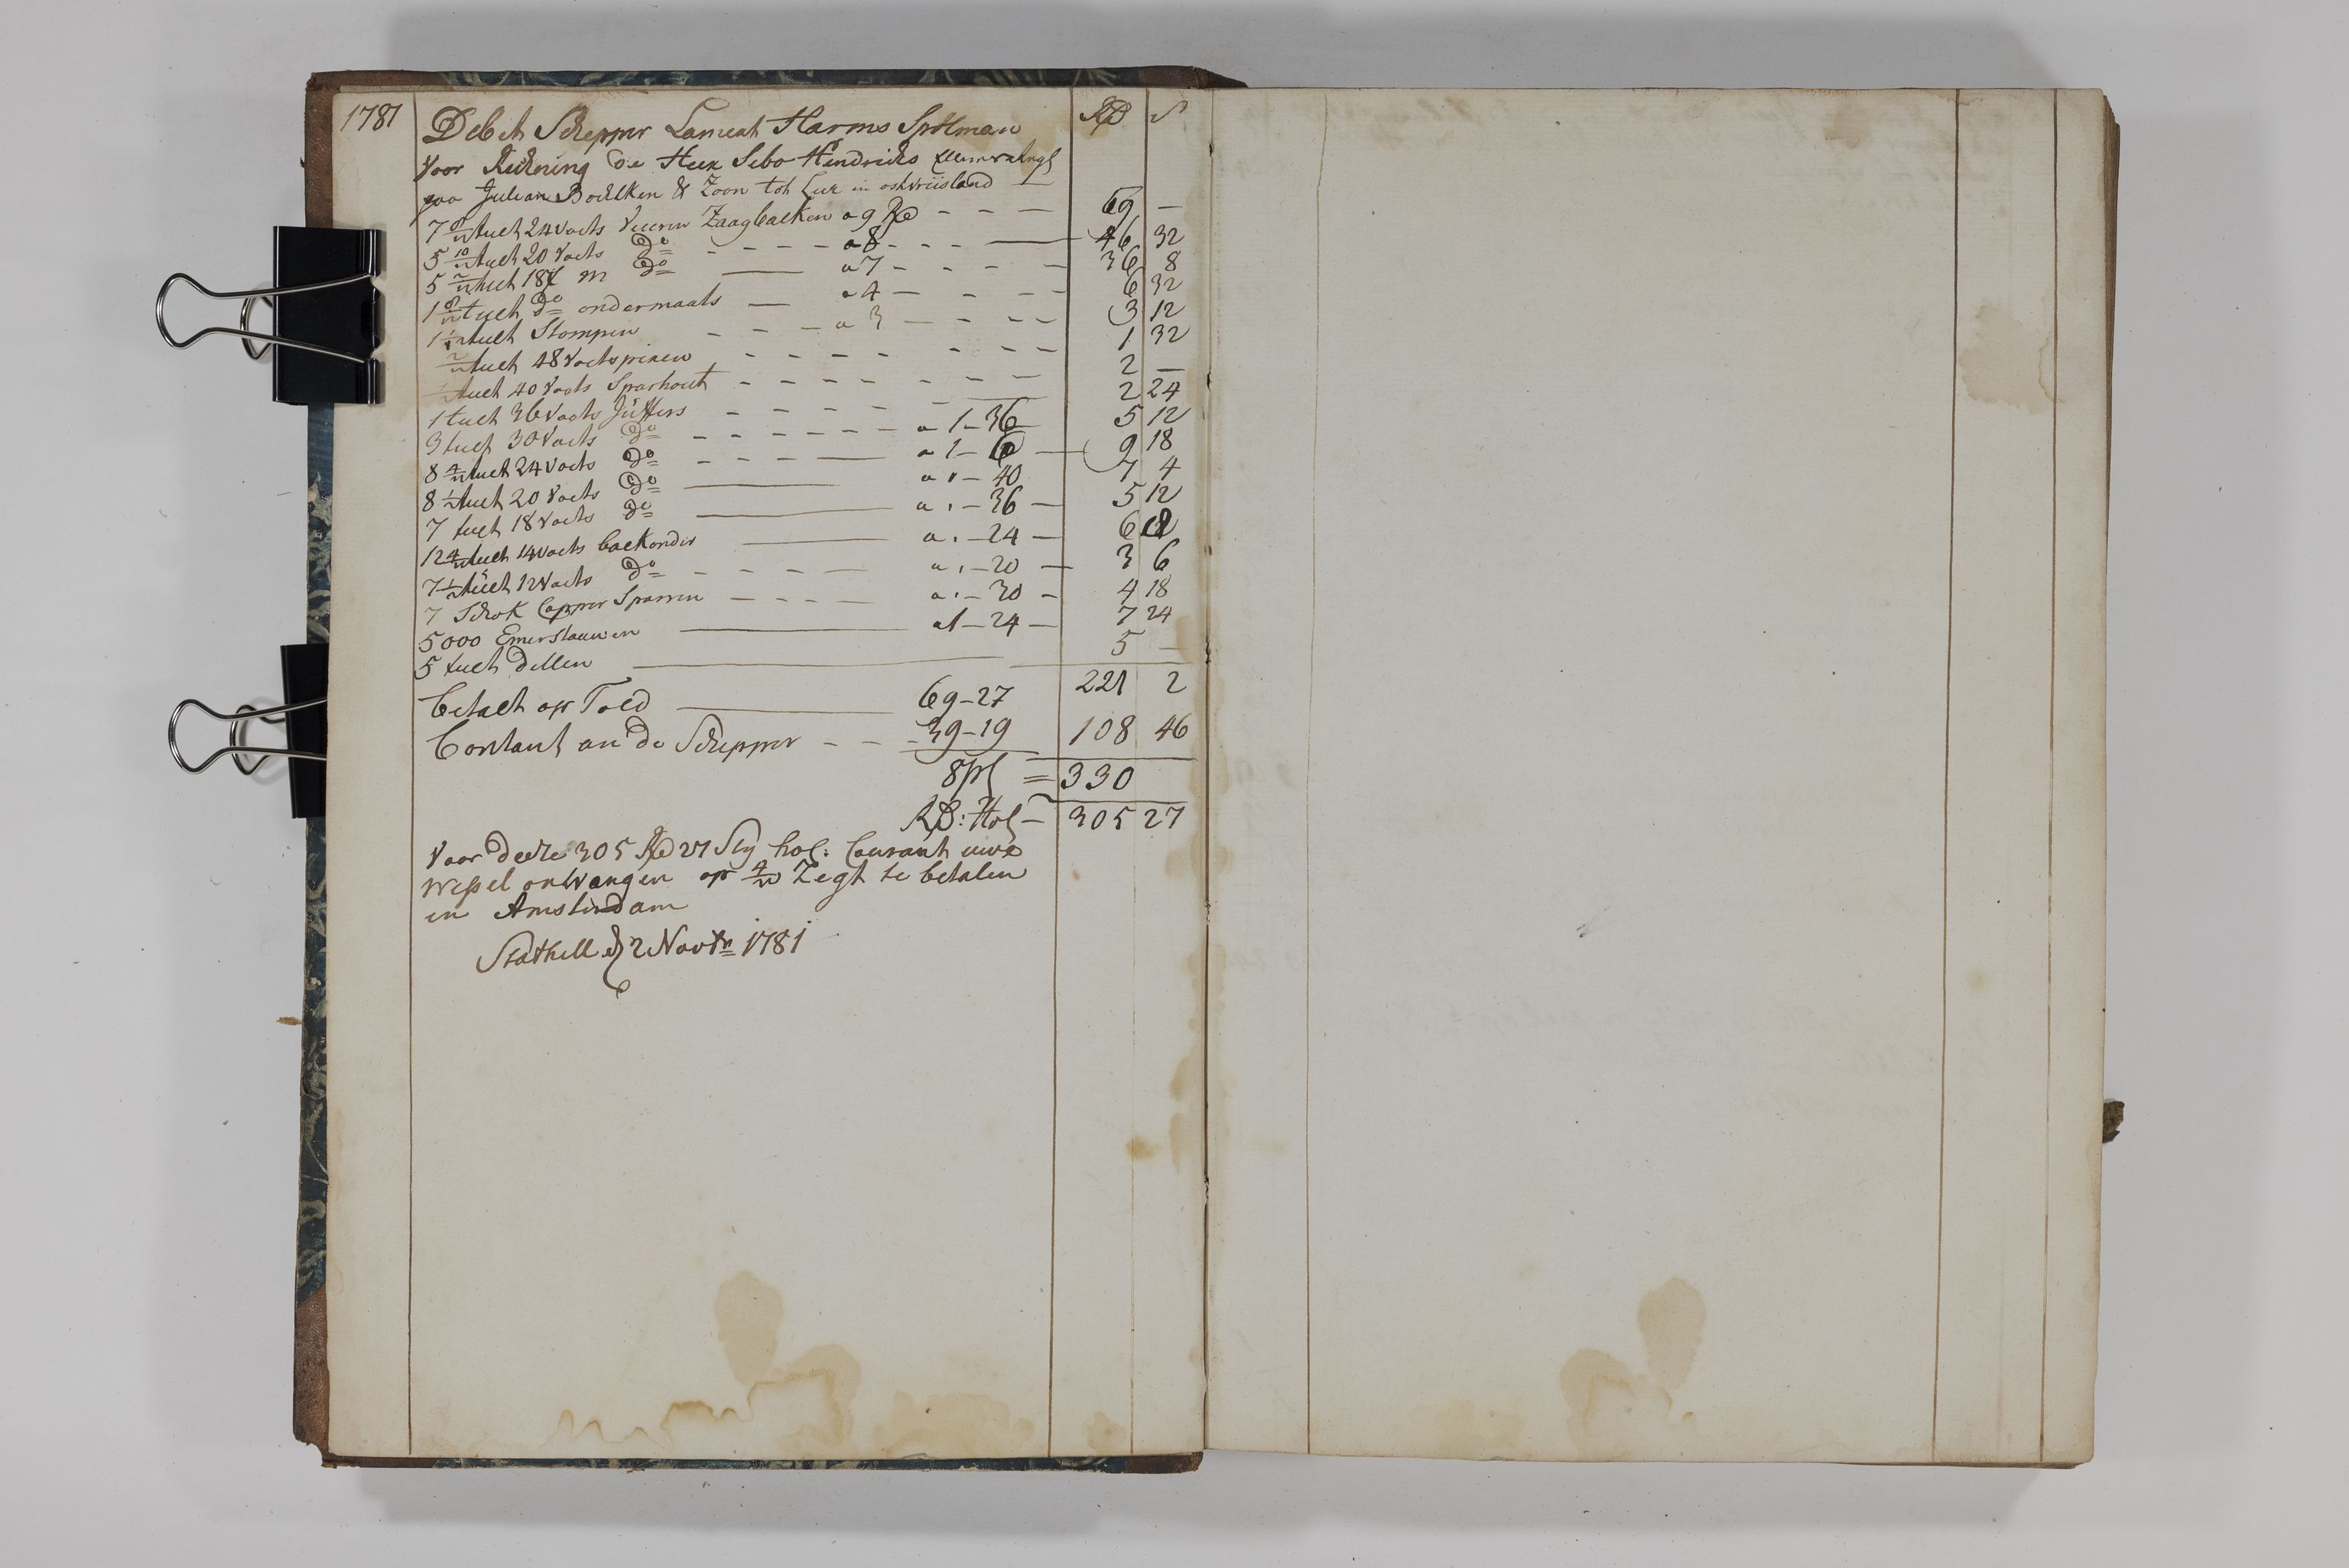 1781 Debet Schepper Lament Harms Spölman Rd s
Voor Rickning die Herr Sebo Hendricks
Julian Boelken & Zoon tot Lur in ostvriisland
7 8/12 tuelt 24 Voets Vueren Zaagbalken a 9 Rd - - - 69 -
5 10/12 tuelt 20 Voets do - - - - a 8 - - - 46 32
5 2/12 tuelt 18 do a 7 - - - - 36 8
1 8/12 tuelt do ondermaats - a 4 - - - - 6 32
1 1/12 tuelt Stompen - - - a 3 - - - - 3 12
2/12 tuelt 48 Voets pieren - - - - - - - 1 32
tuelt 40 Voets Sparhout - - - - - - - 2 -
1 tuelt 36 Voets Jüffers - - - - - - 2 24
3 tuelt 30 Voets do - - - - - - a 1 - 36 5 12
8 4/12 tuelt 24 Voets do - - - - a 1 - 6 - 9 18
8 1/2 tuelt 20 Voets do - a " - 40 7 4
7 tuelt 18 Voets do - a " - 36 - 5 12
12 4/12 tuelt 14 Voets balkonder - a " - 24 - 6
7 1/2 tüelt 12 Voets do - - - - a " - 20 - 3 6
7 Schok Capper Sparren - - - - a " - 30 - 4 18
5000 Emerstauwen - a 1 - 24 - 7 24
5 tuelt dellen - 5 -
221 2
betalt op Told - 69 - 27
Contant an de Schepper - - 39 - 19 108 46
Sps = 330
Rd: Hol - 305 27
Voor deese 305 Rd 27 Sty hol: Courant uwe
Wessel ontvangen op 4/w Zegt te betalen
in Amsterdam
Stathell d 2 Novbr 1781